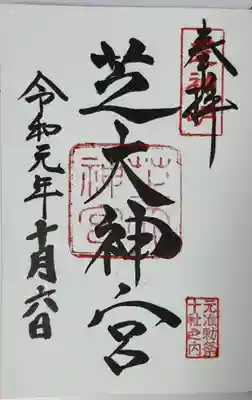 奉拝
芝大神宮
令和元年十月六日
芝大神宮
元准勅祭
十社之内